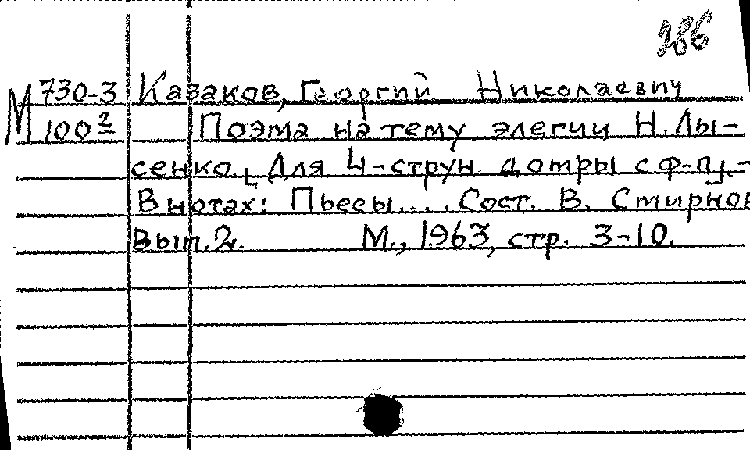 386
М 730-3 Казаков, Георгий Николаевич
100² Поэма на тему элегии Н. Лы-
сенко. [Для 4-струн домры с ф-п].-
В нотах: Пьесы.... Сост. В. Смирнов
Вып. 2. М., 1963, стр. 3-10.